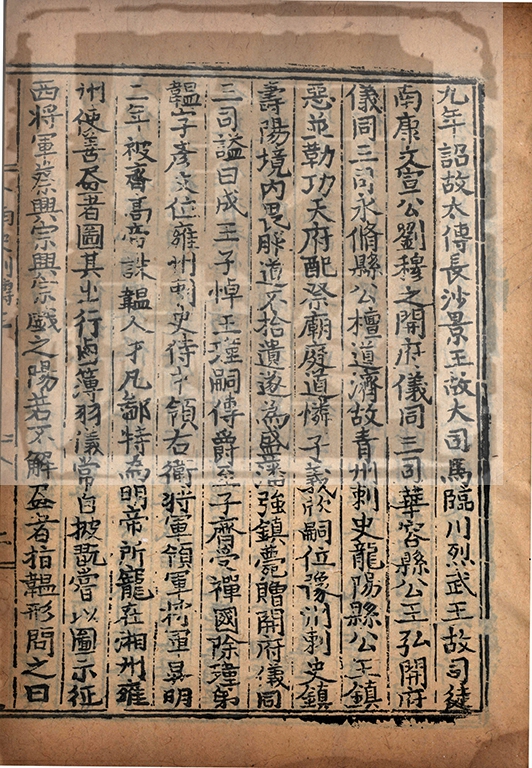 九年詔故太傅長沙景王故大司馬臨川烈武王故司徒
南康文宣公劉穆之開府儀同三司華容縣公王弘開府
儀同三司永脩縣公檀道濟故青州刺史龍陽縣公王鎮
惡並勒功天府配祭廟庭道憐子義欣嗣位豫州刺史鎮
壽陽境內畏服道不拾遺遂為盛藩強鎮薨贈開府儀同
三司謚曰成王子悼王瑾嗣傳爵至子齊受禪國除瑾弟
韞字彥文位雍州刺史侍中領右衛將軍領軍將軍昇明
二年被齊高帝誅韞人才凡鄙特為明帝所寵在湘州雍
州使善畫者圖其出行鹵簿羽儀常自披翫嘗以圖示征
西將軍蔡興宗興宗戲之陽若不解畫者指韞形問之曰